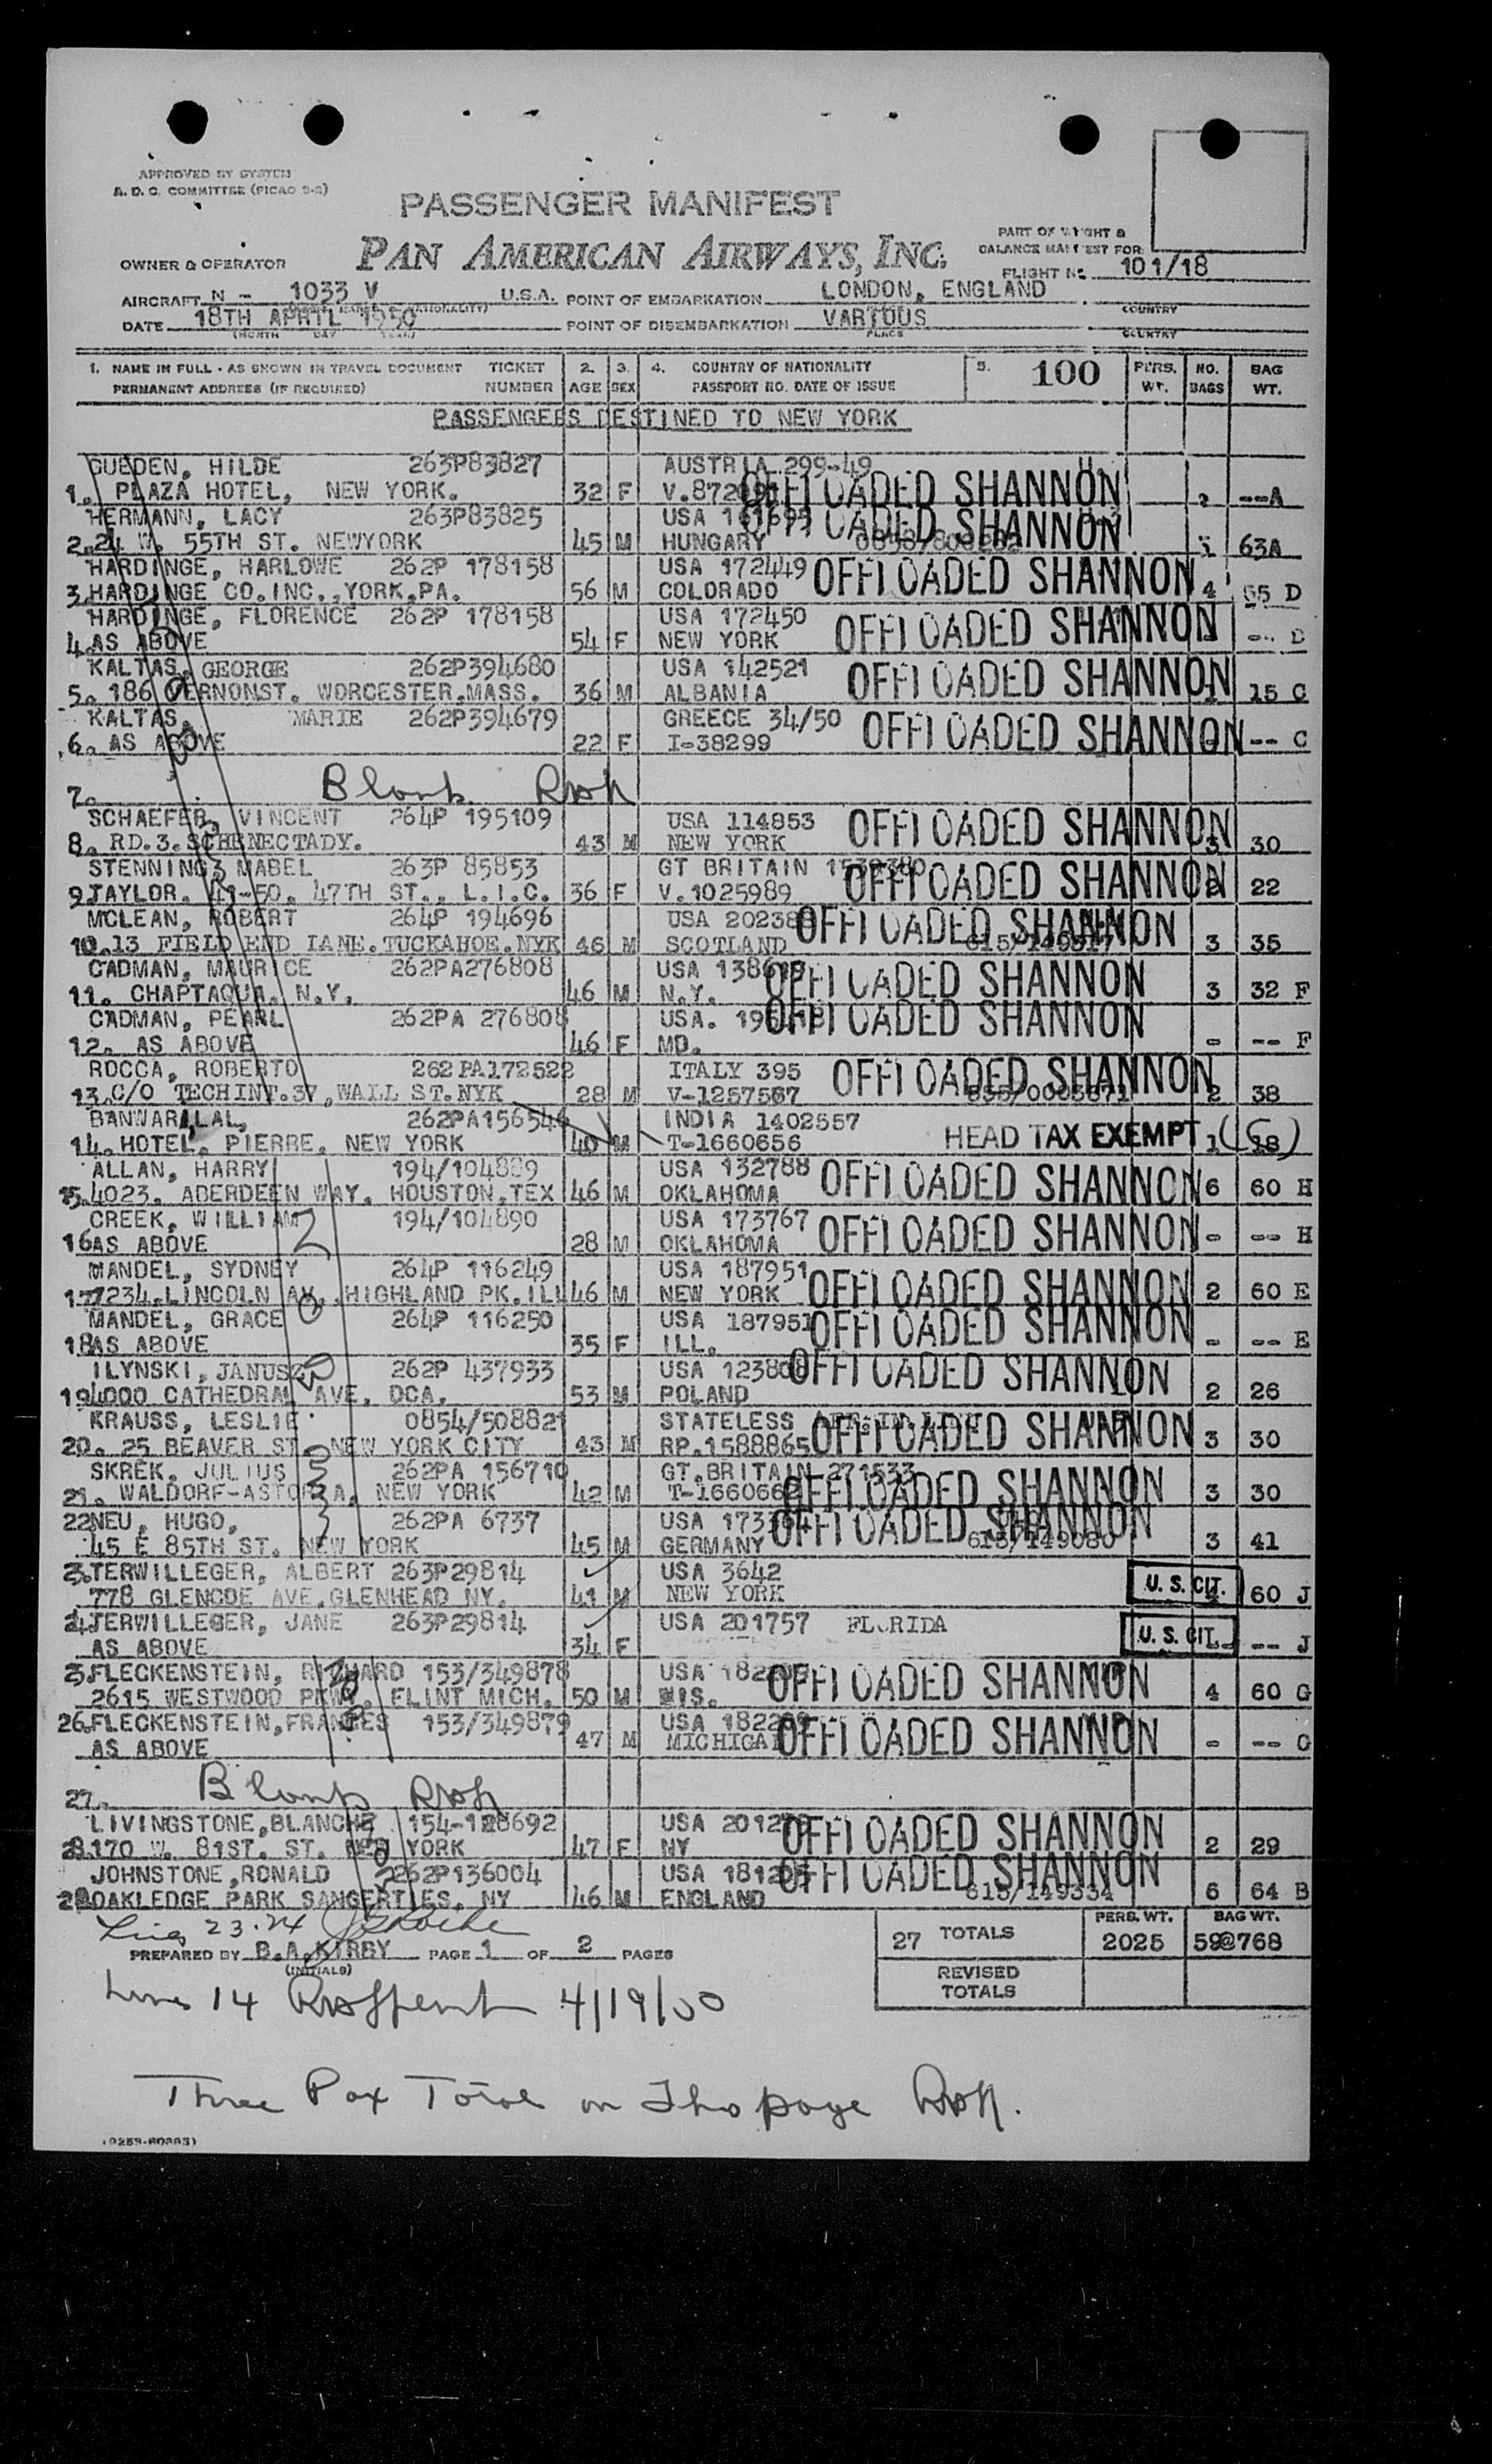 APPROVED BY SYSTEM
A. D. C. COMMITTEE (PICAO 2-2)
PASSENGER MANIFEST
PAN AMERICAN AIRWAYS, INC.
PART OF WEIGHT &
BALANCE MANIFEST FOR
OWNER & OPERATOR FLIGHT No 101/18
AIRCRAFT N - 1033 V U.S.A. POINT OF EMBARKATION LONDON, ENGLAND
COUNTRY
DATE 18TH APRIL 1950 POINT OF DISEMBARKATION VARIOUS
(MONTH DAY YEAR) PLACE COUNTRY
1. NAME IN FULL - AS SHOWN IN TRAVEL DOCUMENT TICKET 2. 3. 4. COUNTRY OF NATIONALITY 5. 100 PERS. NO. BAG
PERMANENT ADDRESS (IF REQUIRED) NUMBER AGE SEX PASSPORT NO. DATE OF ISSUE WT. BAGS WT.
PASSENGERS DESTINED TO NEW YORK
GUEDEN, HILDE 263P83827 AUSTRIA 299-49
1. PLAZA HOTEL, NEW YORK. 32 F OFFLOADED SHANNON --A
HERMANN, LACY 263P83825 USA OFFLOADED SHANNON
2. 24 W. 55TH ST. NEWYORK 45 M HUNGARY 63A
HARDINGE, HARLOWE 262P 178158 USA 172449 OFFLOADED SHANNON
3. HARDINGE CO.INC.,YORK,PA. 56 M COLORADO 4 55 D
HARDINGE, FLORENCE 262P 178158 USA 172450 OFFLOADED SHANNON
4. AS ABOVE 54 F NEW YORK -- D
KALTAS, GEORGE 262P394680 USA 142521 OFFLOADED SHANNON
5. 186 VERNONST. WORCESTER.MASS. 36 M ALBANIA 15 C
KALTAS, MARIE 262P394679 GREECE 34/50 OFFLOADED SHANNON
6. AS ABOVE 22 F I-38299 -- C
7. Blank
SCHAEFER, VINCENT 264P 195109 USA 114853 OFFLOADED SHANNON
8. RD.3.SCHENECTADY. 43 M NEW YORK 3 30
STENNING, MABEL 263P 85853 GT BRITAIN OFFLOADED SHANNON
9 TAYLOR. 41-50. 47TH ST., L.I.C. 36 F V.1025989 2 22
MCLEAN, ROBERT 264P 194696 USA OFFLOADED SHANNON
10.13 FIELD END LANE.TUCKAHOE.NYK 46 M SCOTLAND 3 35
CADMAN, MAURICE 262PA276808 USA OFFLOADED SHANNON
11. CHAPTAQUA. N.Y. 46 M N.Y. 3 32 F
CADMAN, PEARL 262PA 276808 USA. OFFLOADED SHANNON
12. AS ABOVE 46 F MD. - -- F
ROCCA, ROBERTO 262PA172522 ITALY 395 OFFLOADED SHANNON
13.C/O TECHINT.37,WALL ST.NYK 28 M V-1257567 2 38
BANWARILAL, 262PA156546 INDIA 1402557
14. HOTEL. PIERRE, NEW YORK 40 M T-1660656 HEAD TAX EXEMPT 1 (18)
ALLAN, HARRY 194/104889 USA 132788 OFFLOADED SHANNON
15.4023. ABERDEEN WAY. HOUSTON,TEX 46 M OKLAHOMA 6 60 H
CREEK, WILLIAM 194/104890 USA 173767 OFFLOADED SHANNON
16AS ABOVE 28 M OKLAHOMA - -- H
MANDEL, SYDNEY 264P 116249 USA 187951 OFFLOADED SHANNON
17 1234.LINCOLN AV. HIGHLAND PK.ILL 46 M NEW YORK 2 60 E
MANDEL, GRACE 264P 116250 USA 187951 OFFLOADED SHANNON
18AS ABOVE 35 F ILL. - -- E
ILYNSKI, JANUSZ 262P 437933 USA OFFLOADED SHANNON
19 4000 CATHEDRAL AVE. DCA. 53 M POLAND 2 26
KRAUSS, LESLIE 0854/508821 STATELESS OFFLOADED SHANNON
20. 25 BEAVER ST. NEW YORK CITY 43 M RP.1588865 3 30
SKREK, JULIUS 262PA 156710 GT.BRITAIN 271533 OFFLOADED SHANNON
21. WALDORF-ASTORIA, NEW YORK 42 M T-1660662 3 30
22NEU, HUGO, 262PA 6737 USA OFFLOADED SHANNON
45 E 85TH ST. NEW YORK 45 M GERMANY 615/149080 3 41
23.TERWILLEGER, ALBERT 263P29814 USA 3642
778 GLENCOE AVE.GLENHEAD NY. 41 M NEW YORK U. S. CIT. 60 J
24TERWILLEGER, JANE 263P29814 USA 201757 FLORIDA
AS ABOVE 34 F U. S. CIT. -- J
25.FLECKENSTEIN, RICHARD 153/349878 USA OFFLOADED SHANNON
2615 WESTWOOD PKWY. FLINT MICH. 50 M WIS. 4 60 G
26.FLECKENSTEIN,FRANCES 153/349879 USA OFFLOADED SHANNON
AS ABOVE 47 M MICHIGAN - -- G
27. Blank
LIVINGSTONE,BLANCHE 154-128692 USA OFFLOADED SHANNON
28.170 W. 81ST. ST. NEW YORK 47 F NY 2 29
JOHNSTONE,RONALD 262P136004 USA OFFLOADED SHANNON
29OAKLEDGE PARK SANGERTIES, NY 46 M ENGLAND 615/149334 6 64 B
Line 23.24
PREPARED BY B.A.KIRBY PAGE 1 OF 2 PAGES
(INITIALS)
27 TOTALS PERS. WT. 2025 BAG WT. 59@768
REVISED
TOTALS
Line 14 4/19/50
Three Pax Total on This page